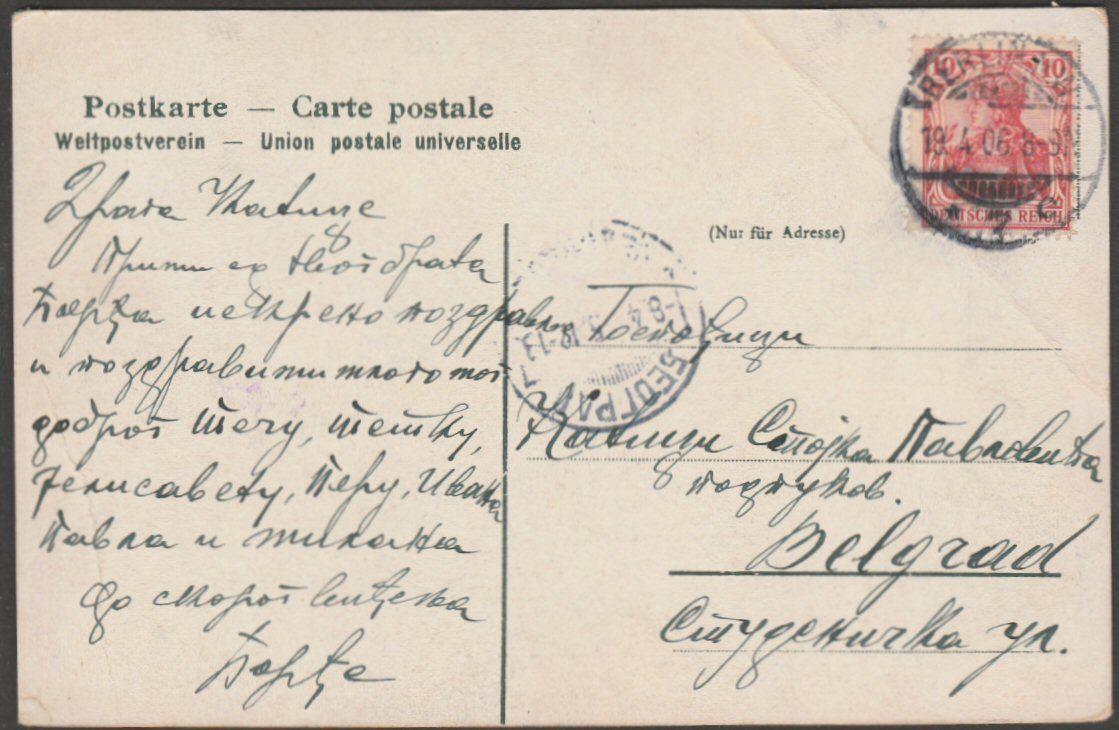 Postkarte — Carte postale
Weltpostverein — Union postale universelle
(Nur für Adresse)
10 10
DEUTSCHES REICH
BERLIN
19.4.06. 8-9
БЕОГРАД
Драга Катице
Прими од твог брата
Ђорђа искрено поздравље
и поздрави много мог
доброг течу, тетку,
Јелисавету, Перу, Ивана
Павла и Милана
До скорог виђења
Ђорђе
Госпођици
Катици Стојка Павловића
потпуков.
Belgrad
Студеничка ул.